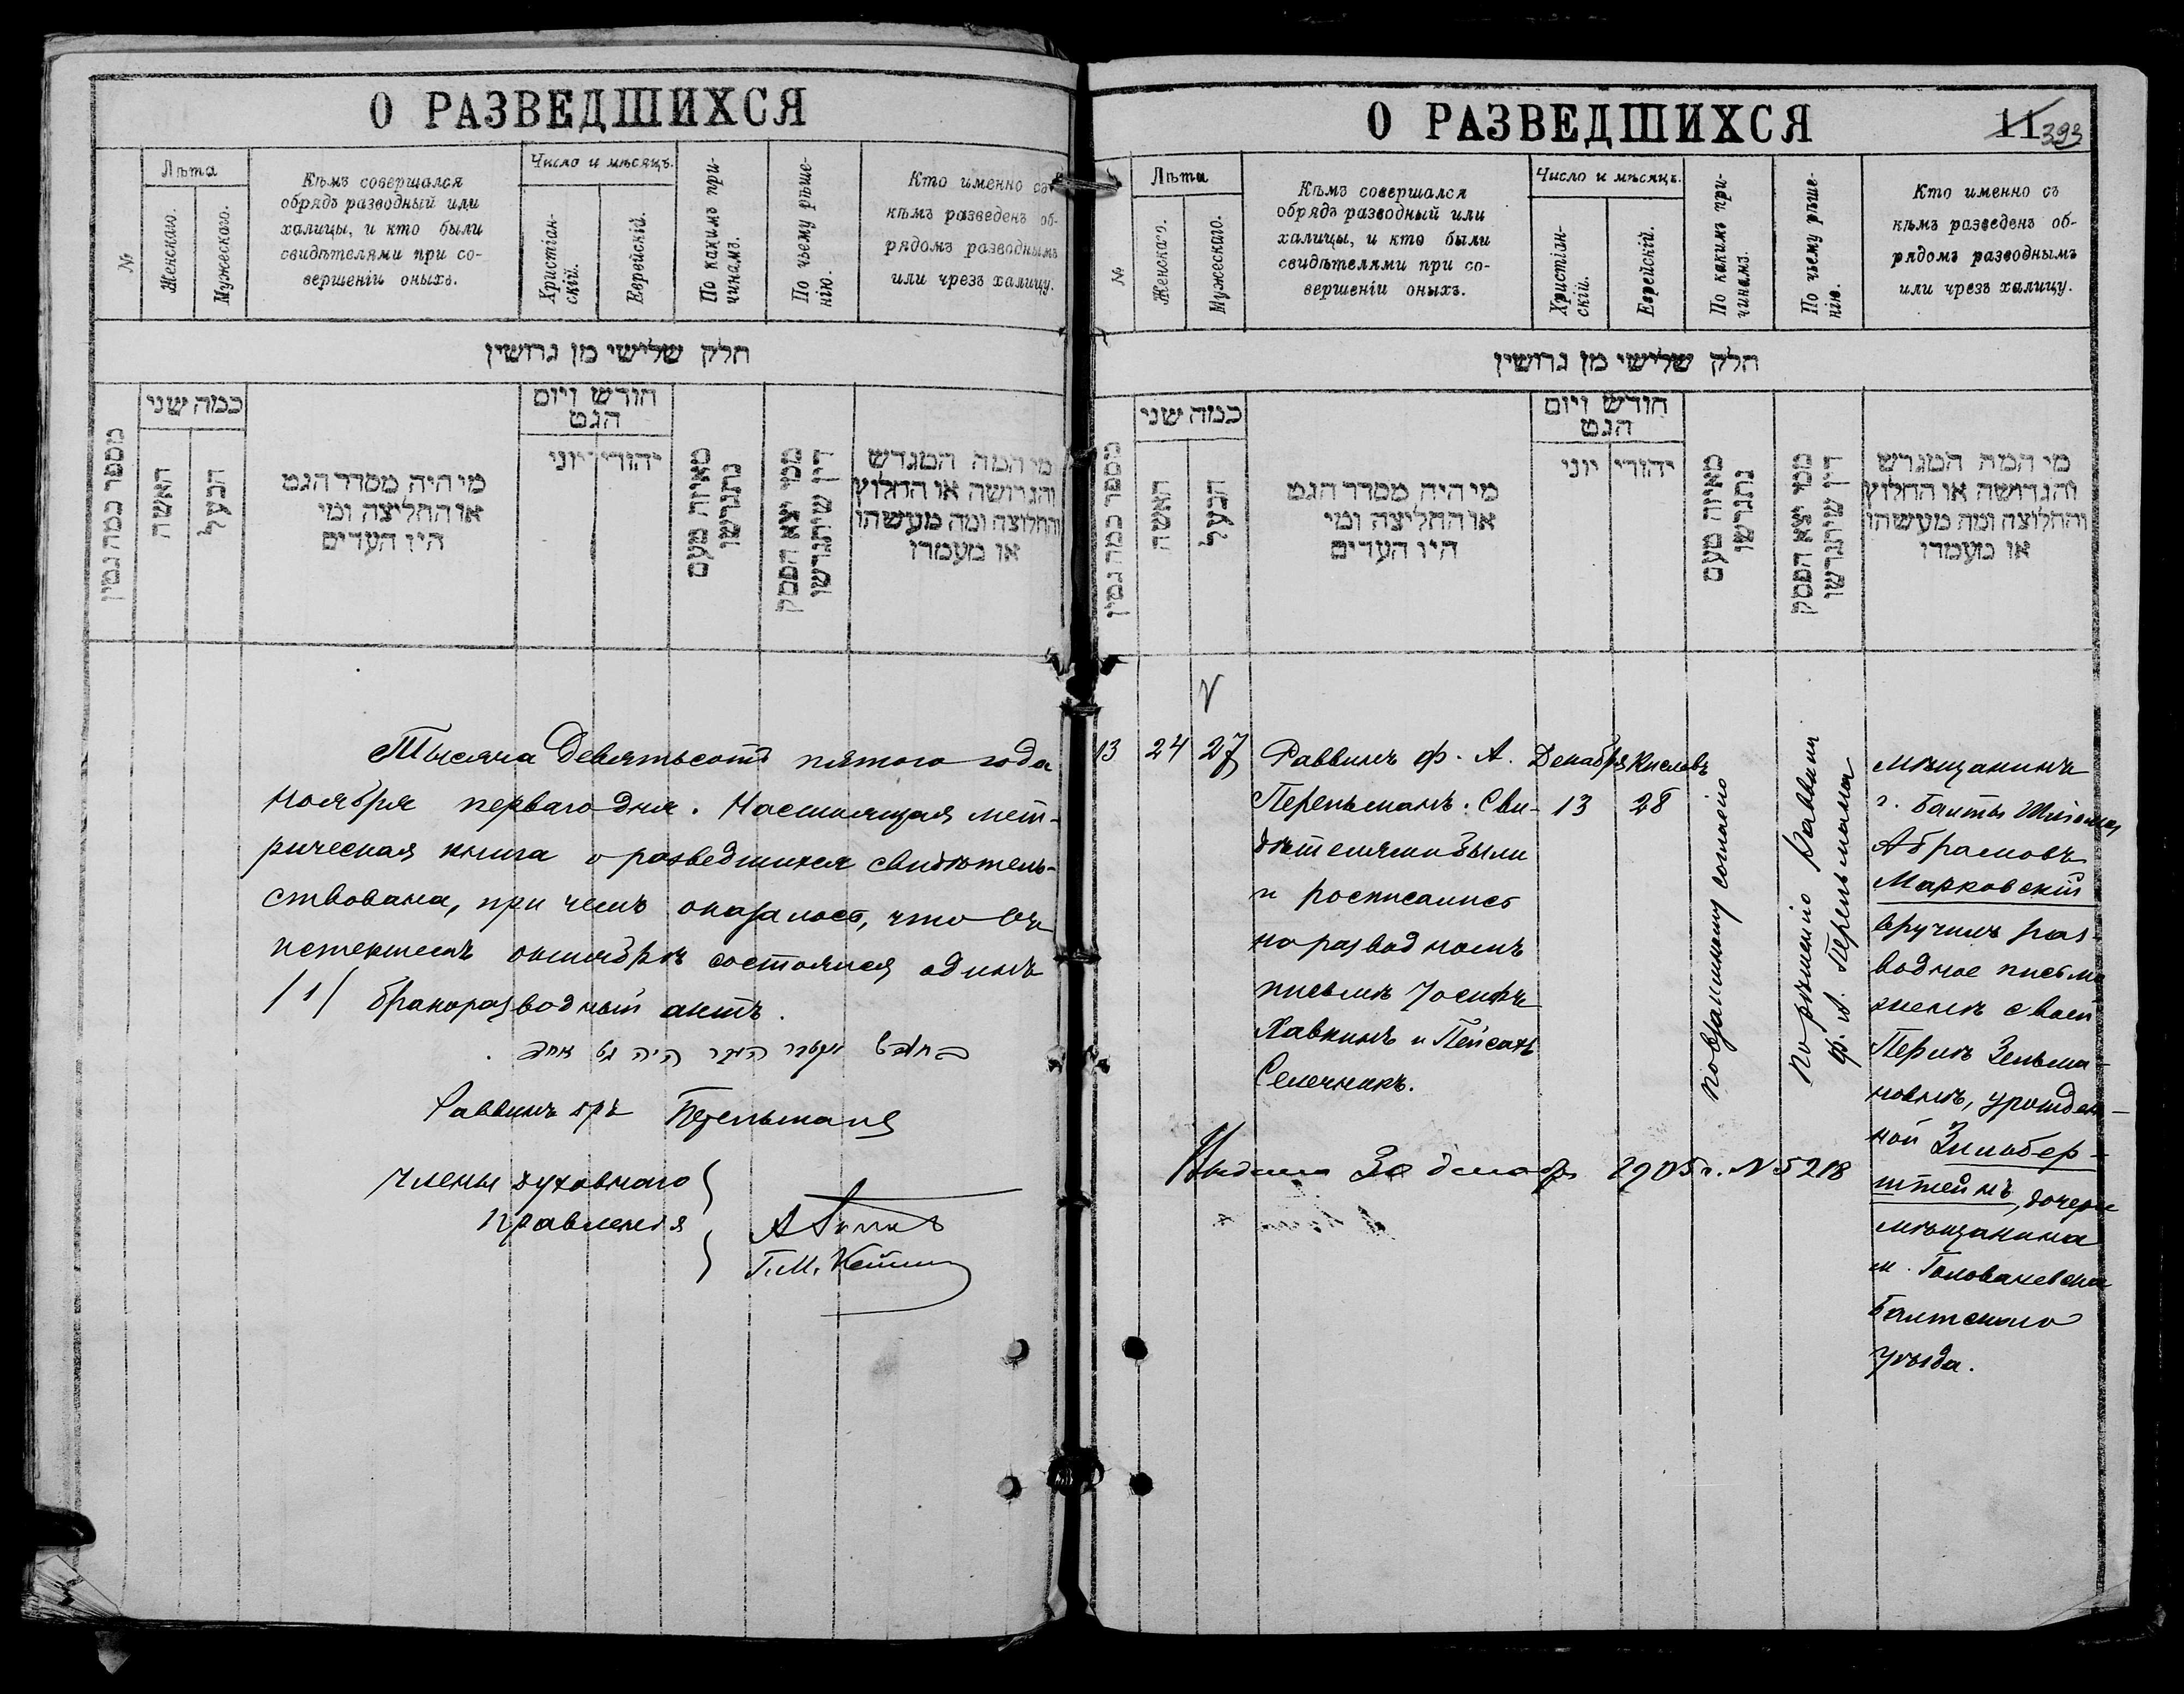 О РАЗВЕДШИХСЯ
№
Лѣта
Женскаго.
Мужескаго.
Кѣмъ совершался
обрядъ разводный или
халицы, и кто были
свидѣтелями при со-
вершеніи оныхъ.
Число и мѣсяцъ.
Христіан-
скій.
Еврейскій.
По какимъ при-
чинамъ.
По чьему рѣше-
нію.
Кто именно съ
кѣмъ разведенъ об-
рядомъ разводнымъ
или чрезъ халицу.
חלק שלישי מן גרושין
מספר כמה גטין
כמה שני
האשה
הבעל
מי היה מסדר הגט
או החליצה ומי
היו העדים
חודש ויום
הגט
יהודי יוני
מאיזה טעם
נתגרשו
ממי יצא הפסק
דין שיתגרשו
מי המה המגרש
והגרושה או החלוץ
והחלוצה ומה מעשהו
או מעמדו
Тысяча Девятьсотъ пятого года
Ноября перваго дня. Настоящая мет-
рическая книга о разведшихся свидѣтель-
ствована, при чемъ оказалось, что въ
истекшемъ октябрѣ состоялся одинъ
/1/ бракоразводный актъ.
היה גט אחד
Раввинъ Перельманъ
Члены духовнаго
правленія
Г.М.
О РАЗВЕДШИХСЯ
11 393
№
Лѣта
Женскаго.
Мужескаго.
Кѣмъ совершался
обрядъ разводный или
халицы, и кто были
свидѣтелями при со-
вершеніи оныхъ.
Число и мѣсяцъ.
Христіан-
скій.
Еврейскій.
По какимъ при-
чинамъ.
По чьему рѣше-
нію.
Кто именно съ
кѣмъ разведенъ об-
рядомъ разводнымъ
или чрезъ халицу.
חלק שלישי מן גרושין
מספר כמה גטין
כמה שני
האשה
הבעל
מי היה מסדר הגט
או החליצה ומי
היו העדים
חודש ויום
הגט
יהודי יוני
מאיזה טעם
נתגרשו
ממי יצא הפסק
דין שיתגרשו
מי המה המגרש
והגרושה או החלוץ
והחלוצה ומה מעשהו
או מעמדו
13 24 27
Раввинъ Ф. А.
Перельманъ. Сви-
дѣтелями были
и росписались
на разводномъ
письмѣ Іосифъ
Хавкинъ и Пейсахъ
Селечникъ.
Декабря
13
Кислевъ
28
По взаимному согласію
По рѣшенію Раввина
Ф. А. Перельмана
Мѣщанинъ
г. Балты
Абрамовъ
Марковскій
вручилъ раз-
водное письмо
женѣ своей
Перлѣ Зельма-
новнѣ, урожден-
ной Зильбер-
штейнъ, дочери
мѣщанина
м. Голованевска
Балтскаго
уѣзда.
30 1905 г. № 5218